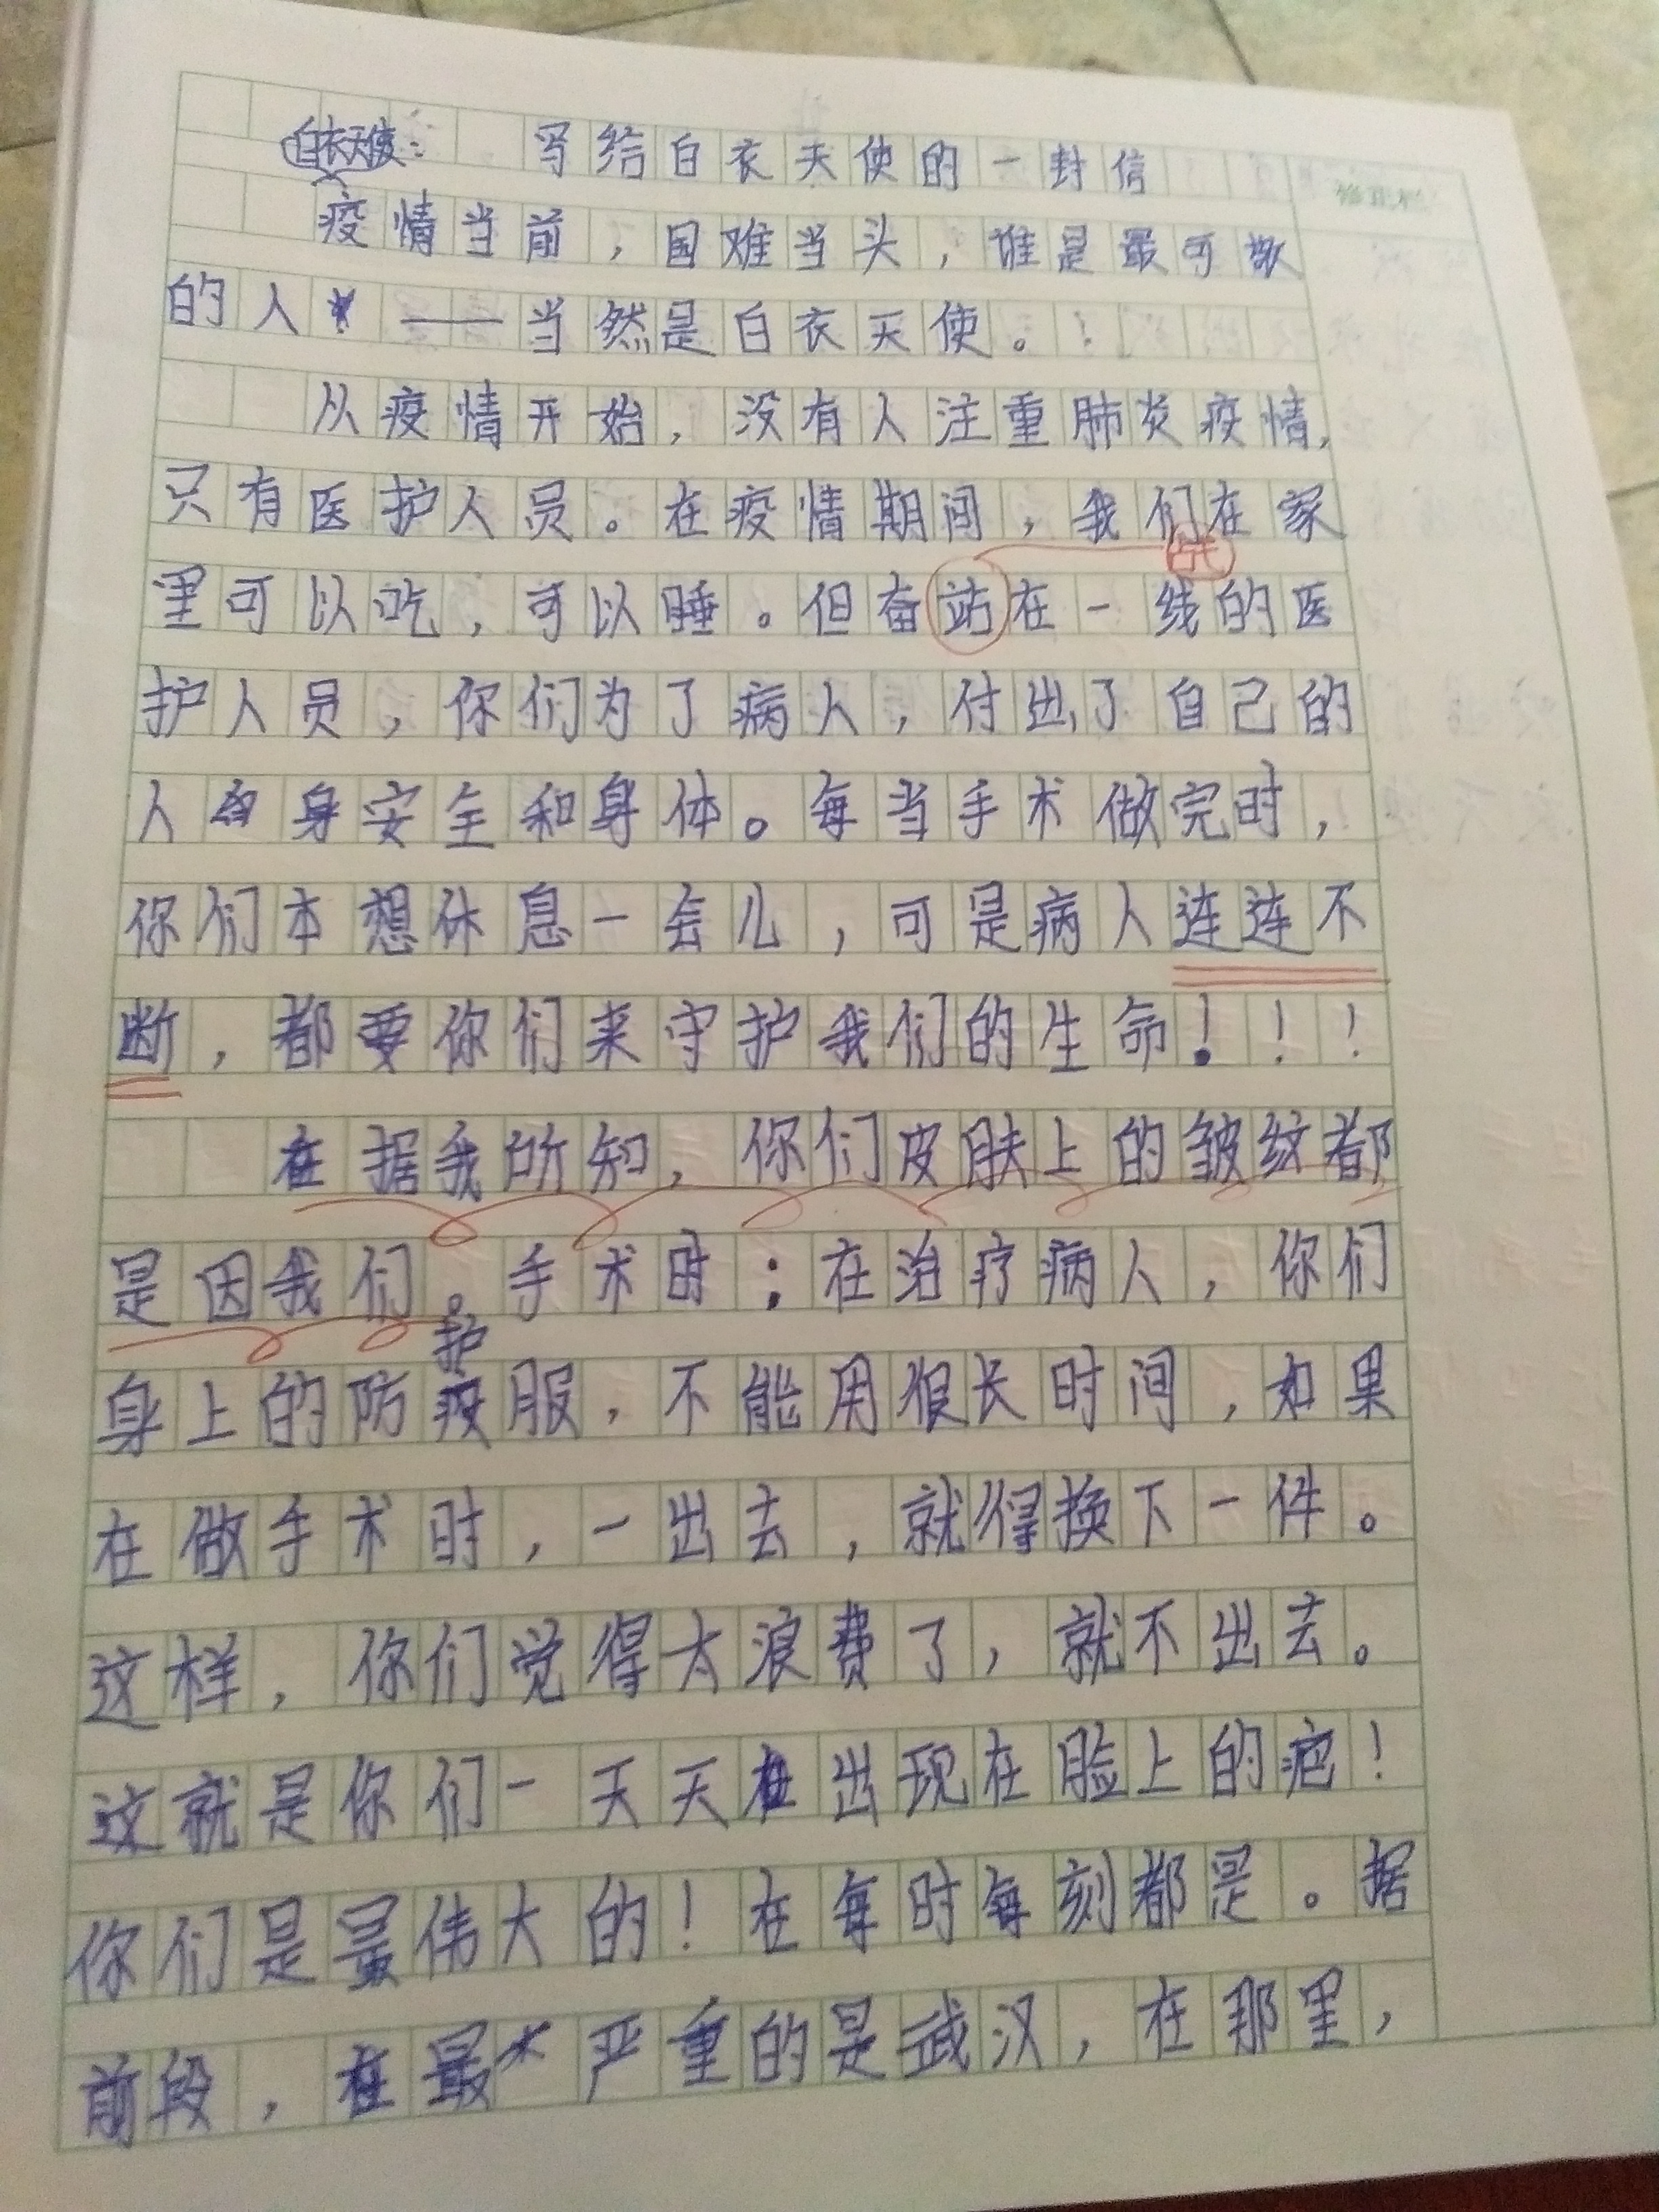 写给白衣天使的一封信
白衣天使：
疫情当前，国难当头，谁是最可敬
的人——当然是白衣天使。
从疫情开始，没有人注重肺炎疫情，
只有医护人员。在疫情期间，我们在家
里可以吃，可以睡。但奋站在一线的医
战
护人员，你们为了病人，付出了自己的
人身安全和身体。每当手术做完时，
你们本想休息一会儿，可是病人连连不
断，都要你们来守护我们的生命！！！
据我所知，你们皮肤上的皱纹都
是因我们。手术时；在治疗病人，你们
身上的防护服，不能用很长时间，如果
在做手术时，一出去，就得换下一件。
这样，你们觉得太浪费了，就不出去。
这就是你们一天天出现在脸上的疤！
你们是最伟大的！在每时每刻都是。据
前段，在最严重的是武汉，在那里，